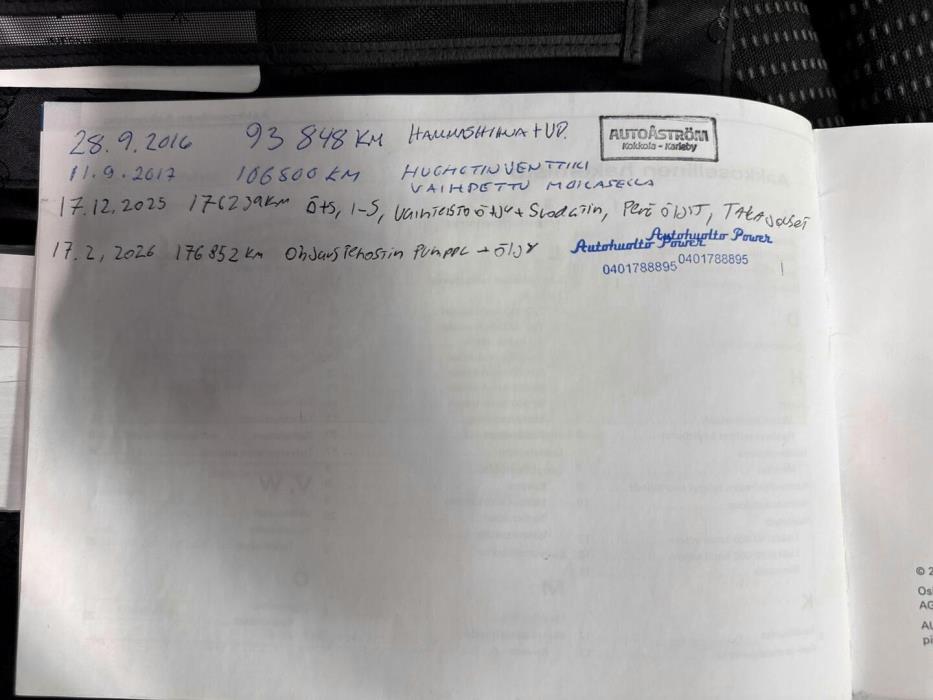 28.9.2016 93 848 KM HAMMASHIHNA + VP. AUTOÅSTRÖM
Kokkola - Karleby
11.9.2017 106500 KM HUOHOTINVENTTIILI
VAIHDETTU MOILASELLA
17.12.2025 176239km Ö+S, I-S, Vaihteisto öljy + Suodatin, Perä öljyt, TAKAJouset
17.2.2026 176852 km Ohjaustehostin Pumppu + öljy Autohuolto Power Autohuolto Power
0401788895 0401788895
© 2
AG